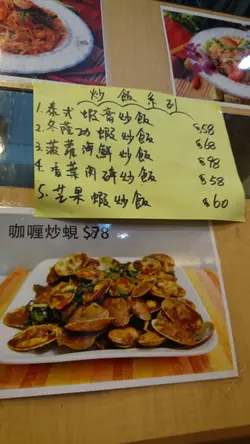 炒飯系列
1. 泰式蝦膏炒飯 $58
2. 冬蔭功蝦炒飯 $68
3. 菠蘿海鮮炒飯 $98
4. 香葉肉碎炒飯 $58
5. 芒果蝦炒飯 $60
咖喱炒蜆 $78